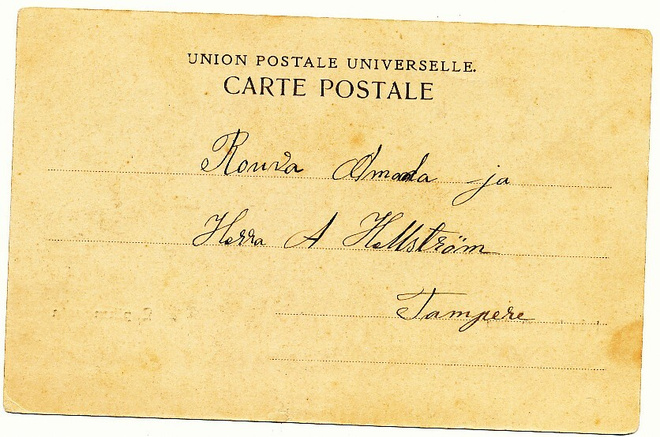 UNION POSTALE UNIVERSELLE.
CARTE POSTALE
Rouva Amada ja
Herra A Hellström
Tampere